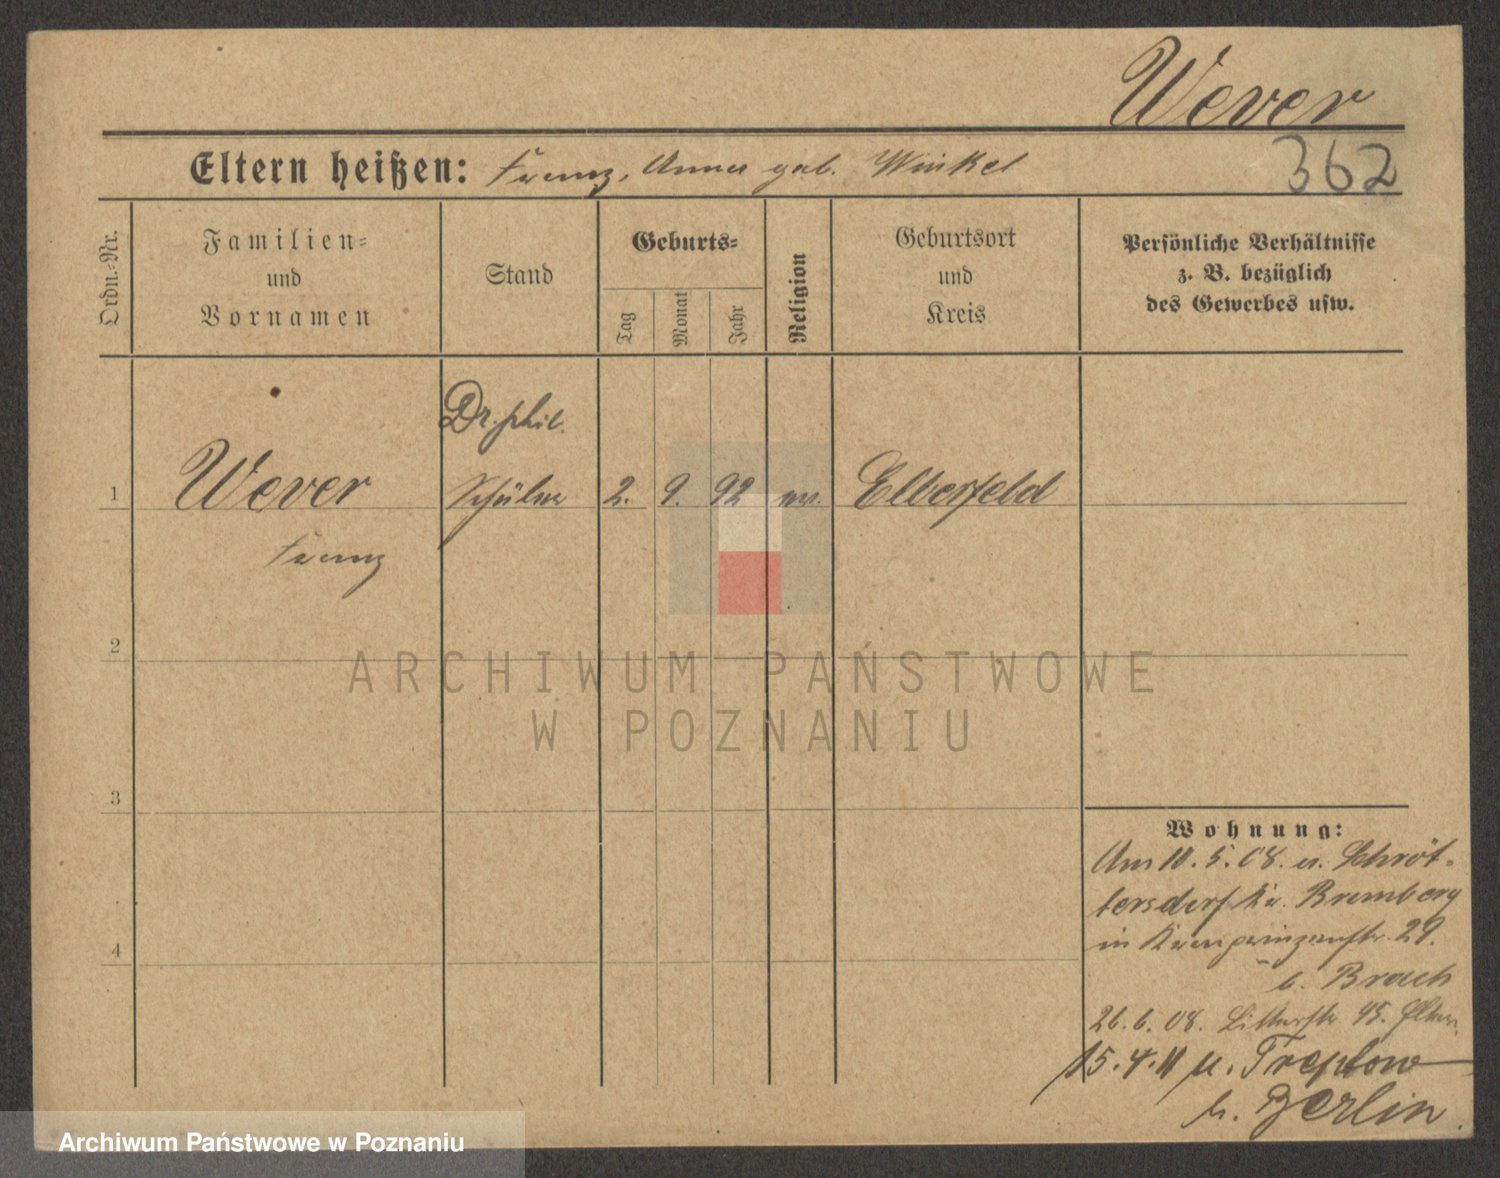 Wever
Eltern heißen: Franz, Anna geb. Winkel
362
Ordn.-Nr.
Familien- und Vornamen
Stand
Geburts-
Tag
Monat
Jahr
Religion
Geburtsort und Kreis
Persönliche Verhältnisse
z. B. bezüglich
des Gewerbes usw.
Dr. phil.
1 Wever Schüler 2. 9. 92 ev. Elberfeld
Franz
2
3
4
Wohnung:
Am 11. 5. 08. v. Schröt-
tersdorf Kr. Bromberg
in Kronprinzenstr. 29.
b. Brach
26. 6. 08. 45. Eltern
15. 4. 11 n. Treptow
b. Berlin.
ARCHIWUM PAŃSTWOWE
W POZNANIU
Archiwum Państwowe w Poznaniu